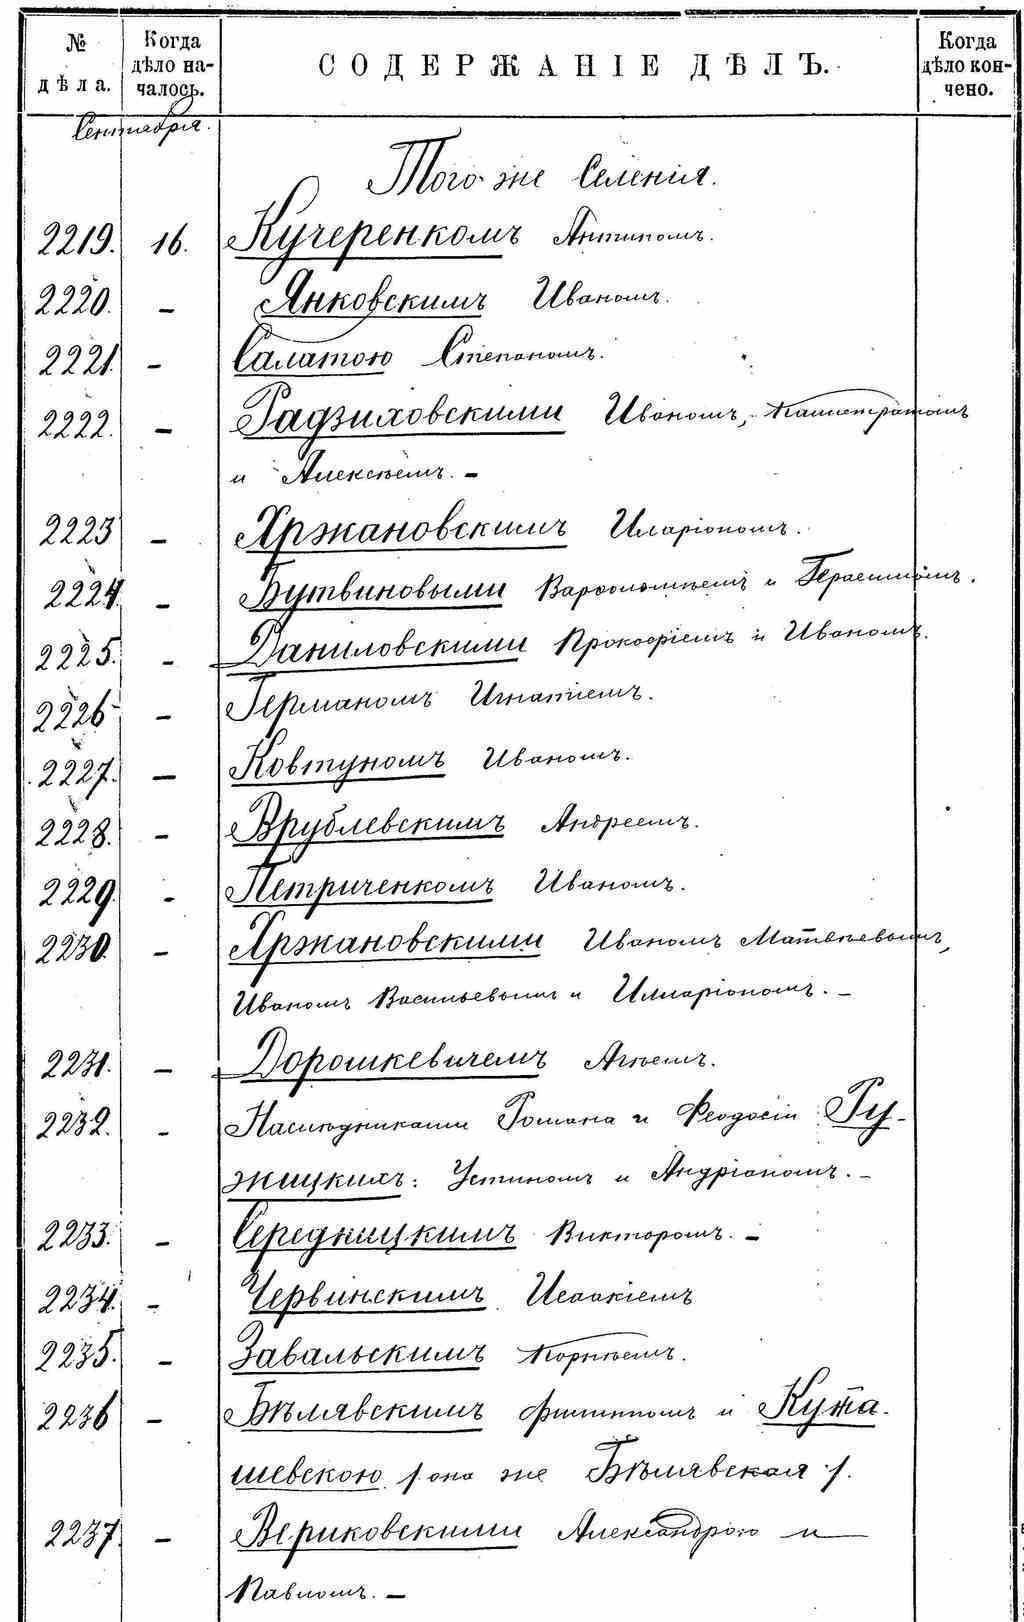 № дѣла. Когда дѣло началось. СОДЕРЖАНІЕ ДѢЛЪ. Когда дѣло кончено.
Сентября.
Того же Селенія.
2219. 16. Кучеренкомъ Антипомъ.
2220. – Янковскимъ Иваномъ.
2221. – Салатою Степаномъ.
2222. – Радзиховскими Иваномъ, Калистратомъ
и Алексѣемъ. –
2223 – Хржановскимъ Иларіономъ.
2224. – Бутвиновыми Варфоломѣемъ и Герасимомъ.
2225. – Даниловскими Прокофіемъ и Иваномъ.
2226 – Германомъ Игнатіемъ.
2227. – Ковтуномъ Иваномъ.
2228. – Врублевскимъ Андреемъ.
2229. – Петриченкомъ Иваномъ.
2230. – Хржановскими Иваномъ Матвѣевымъ,
Иваномъ Васильевымъ и Илларіономъ. –
2231. – Дорошкевичемъ Агѣемъ.
2232. – Наслѣдниками Романа и Феодосіи Ру-
жицкихъ: Устиномъ и Андріаномъ. –
2233. – Середницкимъ Викторомъ. –
2234. – Червинскимъ Исаакіемъ
2235. – Завальскимъ Корнѣемъ.
2236 – Бѣлявскимъ Филиппомъ и Кута-
шевскою /она же Бѣлявская/.
2237 – Вериковскими Александрою и
Павломъ. –